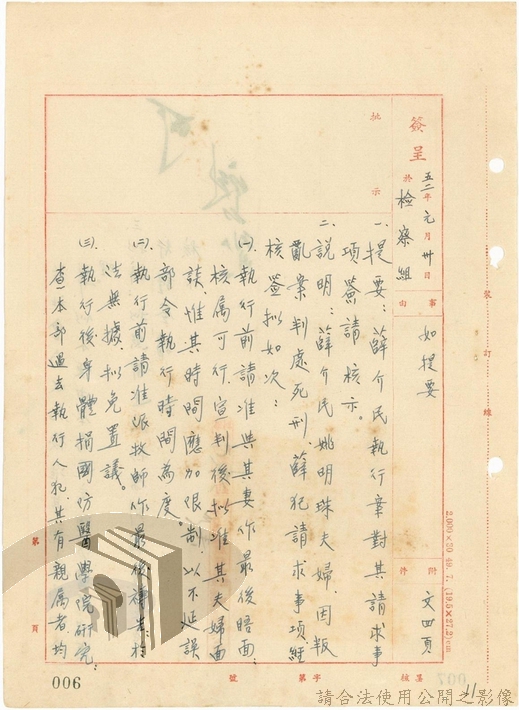 簽呈
於
五二年元月卅日
檢察組
批示
事由
如提要
附件
文四頁
裝訂線
2,000×20 49. 7. (19.5×27.2)cm
一、提要：薛介民執行案對其請求事
項簽請核示。
二、說明：薛介民姚明珠夫婦，因叛
亂案判處死刑，薛犯請求事項，經
核簽擬如次：
㈠執行前請准與其妻作最後晤面：
核屬可行，宣判後擬准其夫婦面
談，惟其時間應加限制，以不延誤
部令執行時間為度。
㈡執行前請准派牧師作最後禱告：於
法無據，擬免置議。
㈢執行後身體捐國防醫學院研究：
查本部過去執行人犯，其有親屬者，均
第 頁
號 字第
006
007
11
請合法使用公開之影像